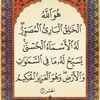 هُوَ اللَّهُ
الْخَٰلِقُ الْبَارِئُ الْمُصَوِّرُ
لَهُ الْأَسْمَاءُ الْحُسْنَىٰ
يُسَبِّحُ لَهُ مَا فِي السَّمَٰوَٰتِ
وَالْأَرْضِ وَهُوَ الْعَزِيزُ الْحَكِيمُ